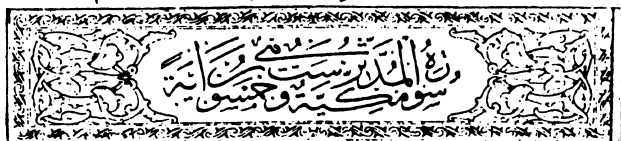 سورة المدثر مكية وهي ست وخمسون آية